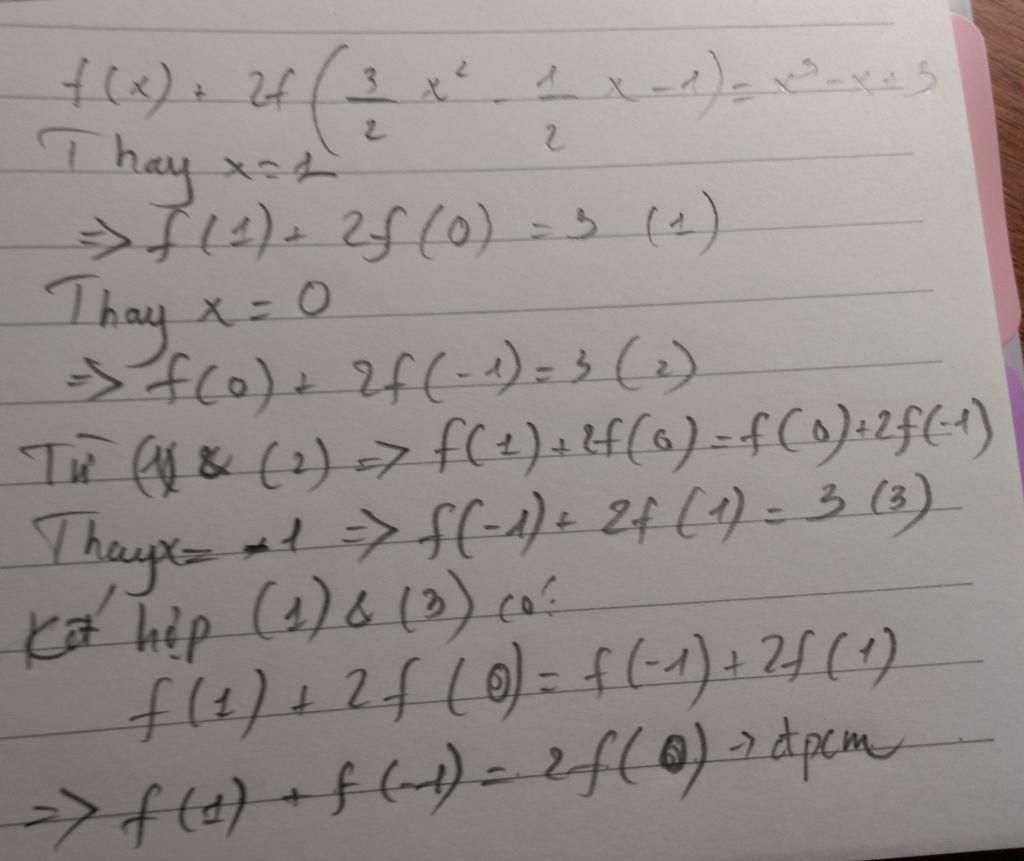 f(x) + 2f(3/2 x² - 1/2 x - 1) = x³ - x + 3
Thay x = 1
=> f(1) + 2f(0) = 3 (1)
Thay x = 0
=> f(0) + 2f(-1) = 3 (2)
Từ (1) & (2) => f(1) + 2f(0) = f(0) + 2f(-1)
Thay x = -1 => f(-1) + 2f(1) = 3 (3)
Kết hợp (1) & (3) có:
f(1) + 2f(0) = f(-1) + 2f(1)
=> f(1) + f(-1) = 2f(0) → đpcm